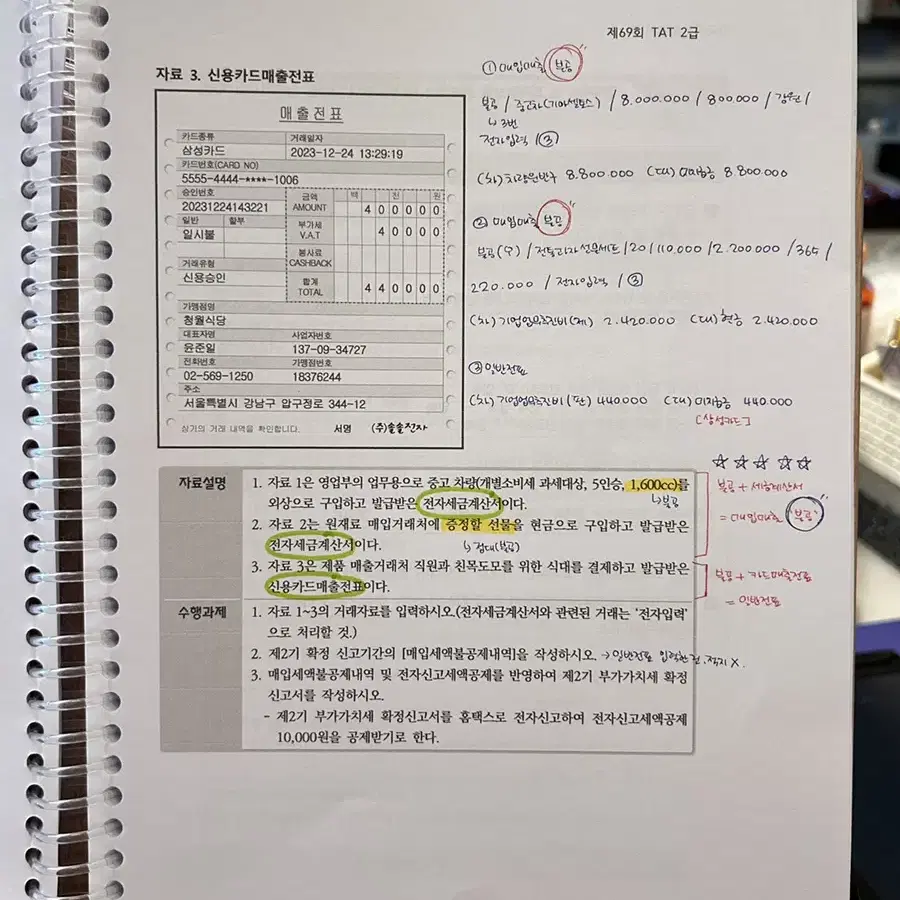 제69회 TAT 2급
자료 3. 신용카드매출전표
매출전표
카드종류 거래일자
삼성카드 2023-12-24 13:29:19
카드번호(CARD NO)
5555-4444-****-1006
승인번호 금액 AMOUNT 백 천 원
20231224143221 4 0 0 0 0 0
일반 할부 부가세 V.A.T 4 0 0 0 0
일시불
봉사료 CASHBACK
거래유형
신용승인 합계 TOTAL 4 4 0 0 0 0
가맹점명
청월식당
대표자명 사업자번호
윤준일 137-09-34727
전화번호 가맹점번호
02-569-1250 18376244
주소
서울특별시 강남구 압구정로 344-12
상기의 거래 내역을 확인합니다. 서명 (주)솔솔전자
① 매입매출 "불공"
불공 / 중고차(기아셀토스) / 8.000.000 / 800/000 / 강원 /
↳ 3번
전자입력 / ③
(차) 차량운반구 8.800.000 (대) 미지급금 8 800.000
② 매입매출 "불공"
불공(9) / 전통과자선물세트 / 20/110.000 / 2.200.000 / 365 /
220.000 / 전자입력 / ③
(차) 기업업무추진비(제) 2.420.000 (대) 현금 2.420.000
③ 일반전표
(차) 기업업무추진비(판) 440000 (대) 미지급금 440.000
[삼성카드]
자료설명 1. 자료 1은 영업부의 업무용으로 중고 차량(개별소비세 과세대상, 5인승, 1,600cc)를
외상으로 구입하고 발급받은 전자세금계산서이다.
↳불공
2. 자료 2는 원재료 매입거래처에 증정할 선물을 현금으로 구입하고 발급받은
전자세금계산서이다.
↳ 접대(불공)
3. 자료 3은 제품 매출거래처 직원과 친목도모를 위한 식대를 결제하고 발급받은
신용카드매출전표이다.
☆☆☆☆☆
불공 + 세금계산서
= 매입매출 "불공"
불공 + 카드매출전표
= 일반전표
수행과제 1. 자료 1~3의 거래자료를 입력하시오.(전자세금계산서와 관련된 거래는 '전자입력'
으로 처리할 것.)
2. 제2기 확정 신고기간의 [매입세액불공제내역]을 작성하시오. → 일반전표 입력한 건, 적지 X.
3. 매입세액불공제내역 및 전자신고세액공제를 반영하여 제2기 부가가치세 확정
신고서를 작성하시오.
- 제2기 부가가치세 확정신고서를 홈택스로 전자신고하여 전자신고세액공제
10,000원을 공제받기로 한다.